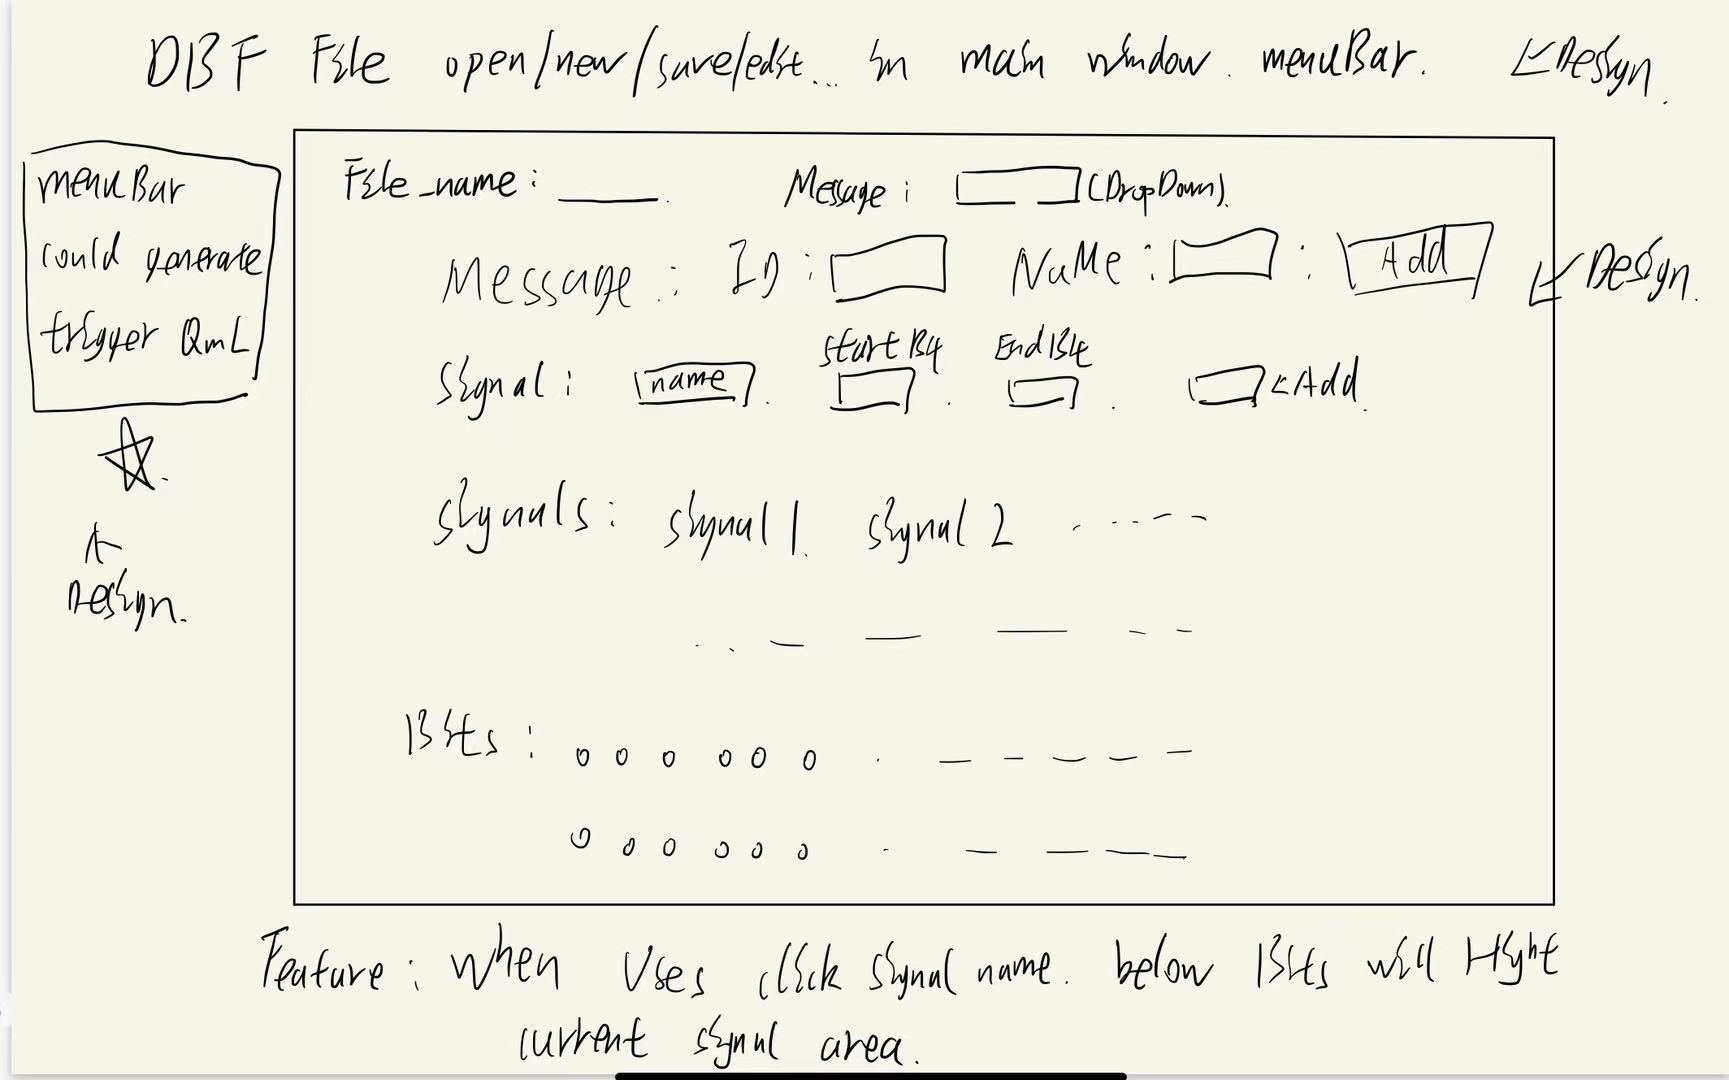 DBF File open/new/save/edit... in main window. menuBar. ← Design.
menuBar
could generate
trigger QmL
Design.
File_name: ____. Message: (DropDown).
Message: ID: Name: : Add
← Design.
Start Bit End Bit
Signal: name . . . ← Add.
Signals: Signal 1. Signal 2 . . . . - -
Bits: 0 0 0 0 0 0 . - - - - -
0 0 0 0 0 0 . - - - -
Feature: when Uses click signal name. below Bits will Hight
current signal area.